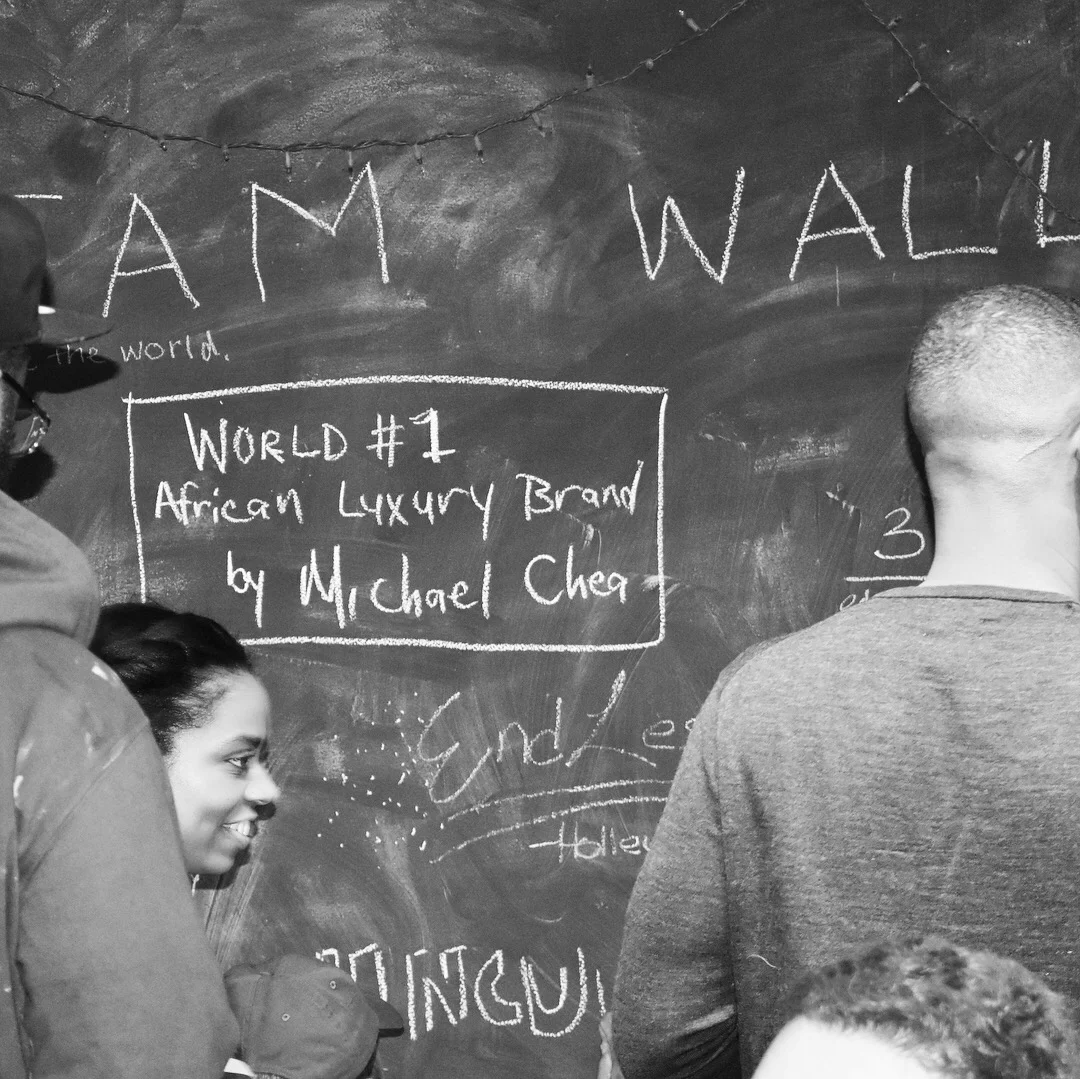 AM WALL
the world.
WORLD #1
African Luxury Brand
by Michael Chea
EndLes
3